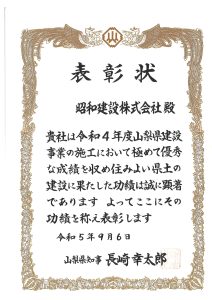 表彰状
昭和建設株式会社 殿
貴社は令和４年度山梨県建設
事業の施工において極めて優秀
な成績を収め住みよい県土の
建設に果たした功績は誠に顕著
であります よってここにその
功績を称え表彰します
令和５年９月６日
山梨県知事 長崎幸太郎